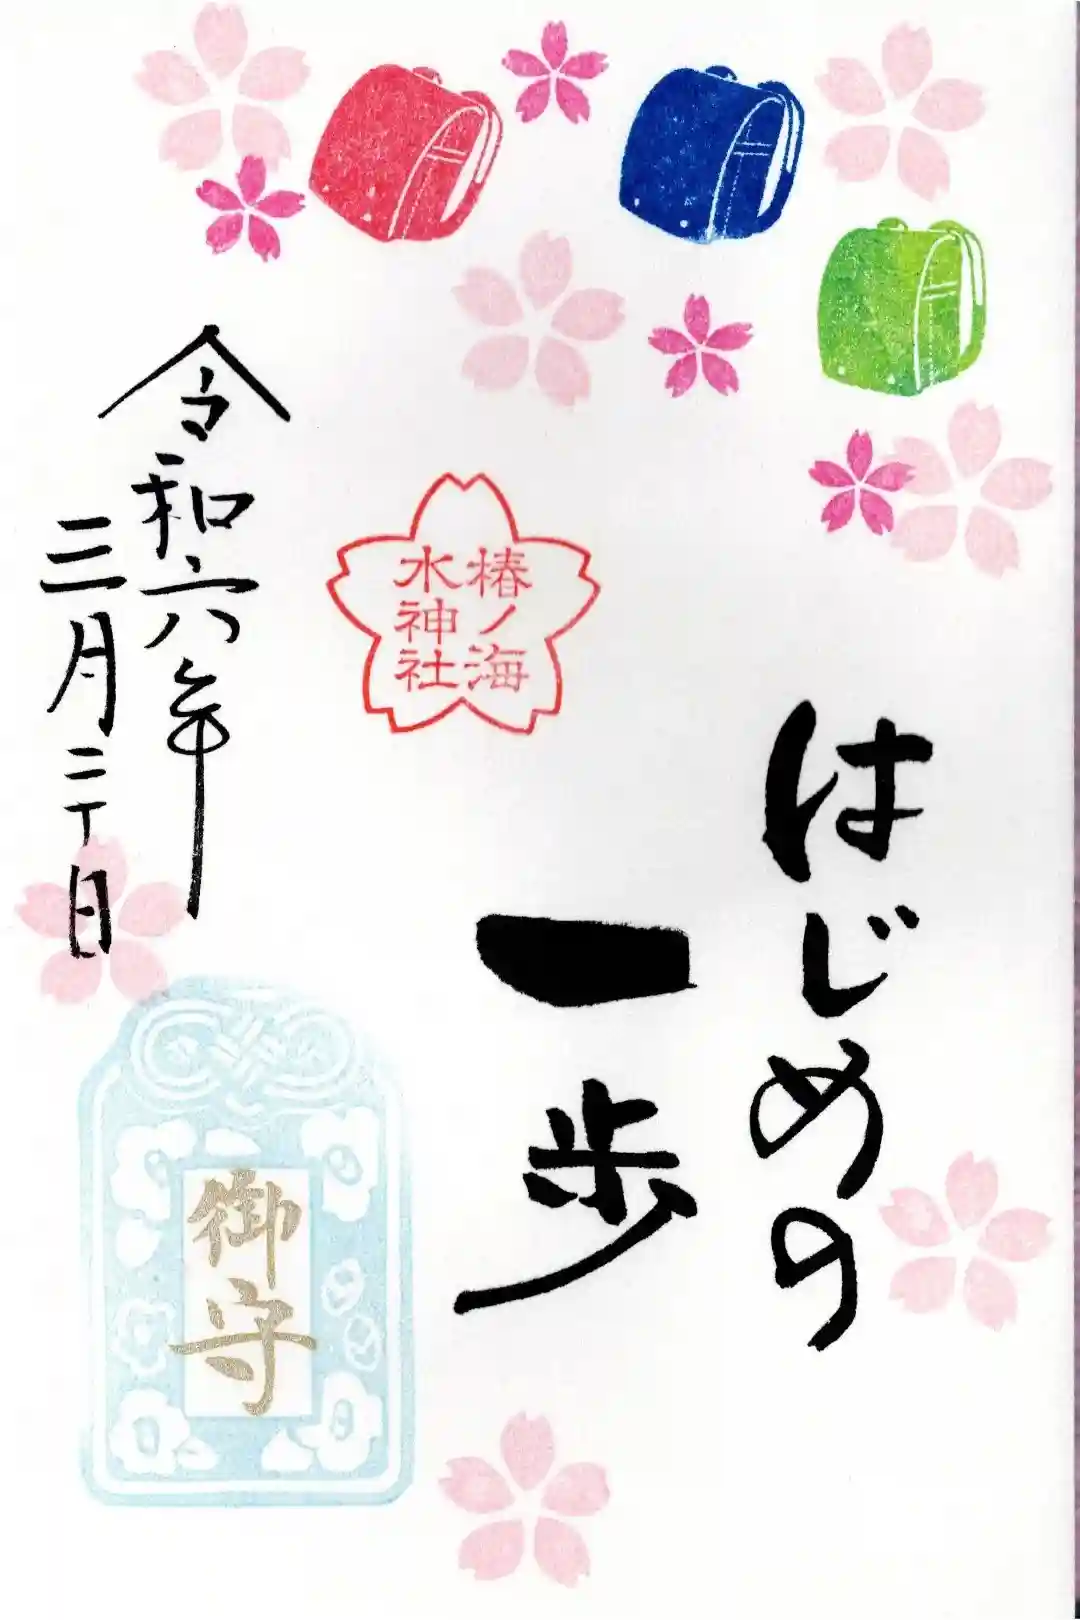 はじめの
一歩
椿ノ海
水神社
令和六年
三月二十日
御守